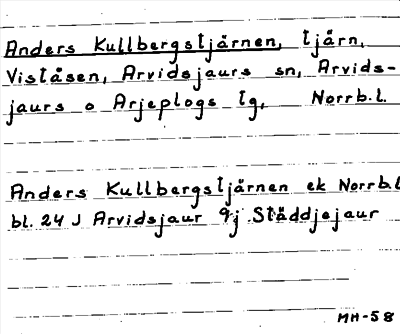 Anders Kullbergstjärnen, tjärn,
Viståsen, Arvidsjaurs sn, Arvids-
jaurs o Arjeplogs tg, Norrb.l.
Anders Kullbergstjärnen ek Norrb.l
bl. 24 J Arvidsjaur 9j Städdjejaur
MH-58